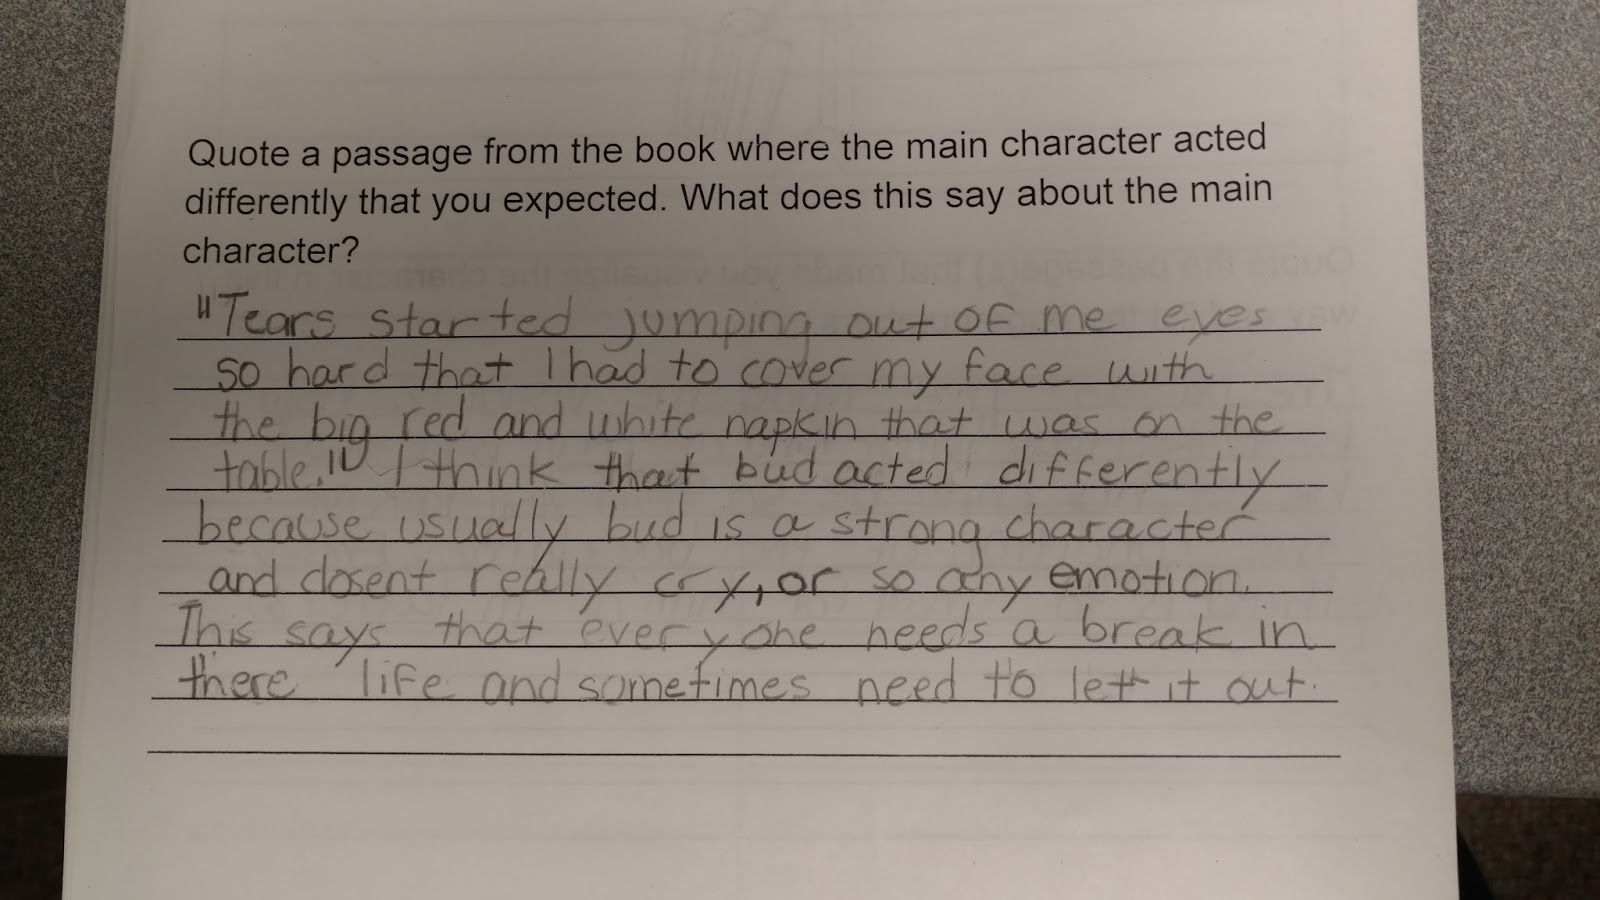 Quote a passage from the book where the main character acted
differently that you expected. What does this say about the main
character?
"Tears started jumping out of me eyes
so hard that I had to cover my face with
the big red and white napkin that was on the
table." I think that bud acted differently
because usually bud is a strong character
and dosent really cry, or so any emotion.
This says that everyone needs a break in
there life and sometimes need to lett it out.